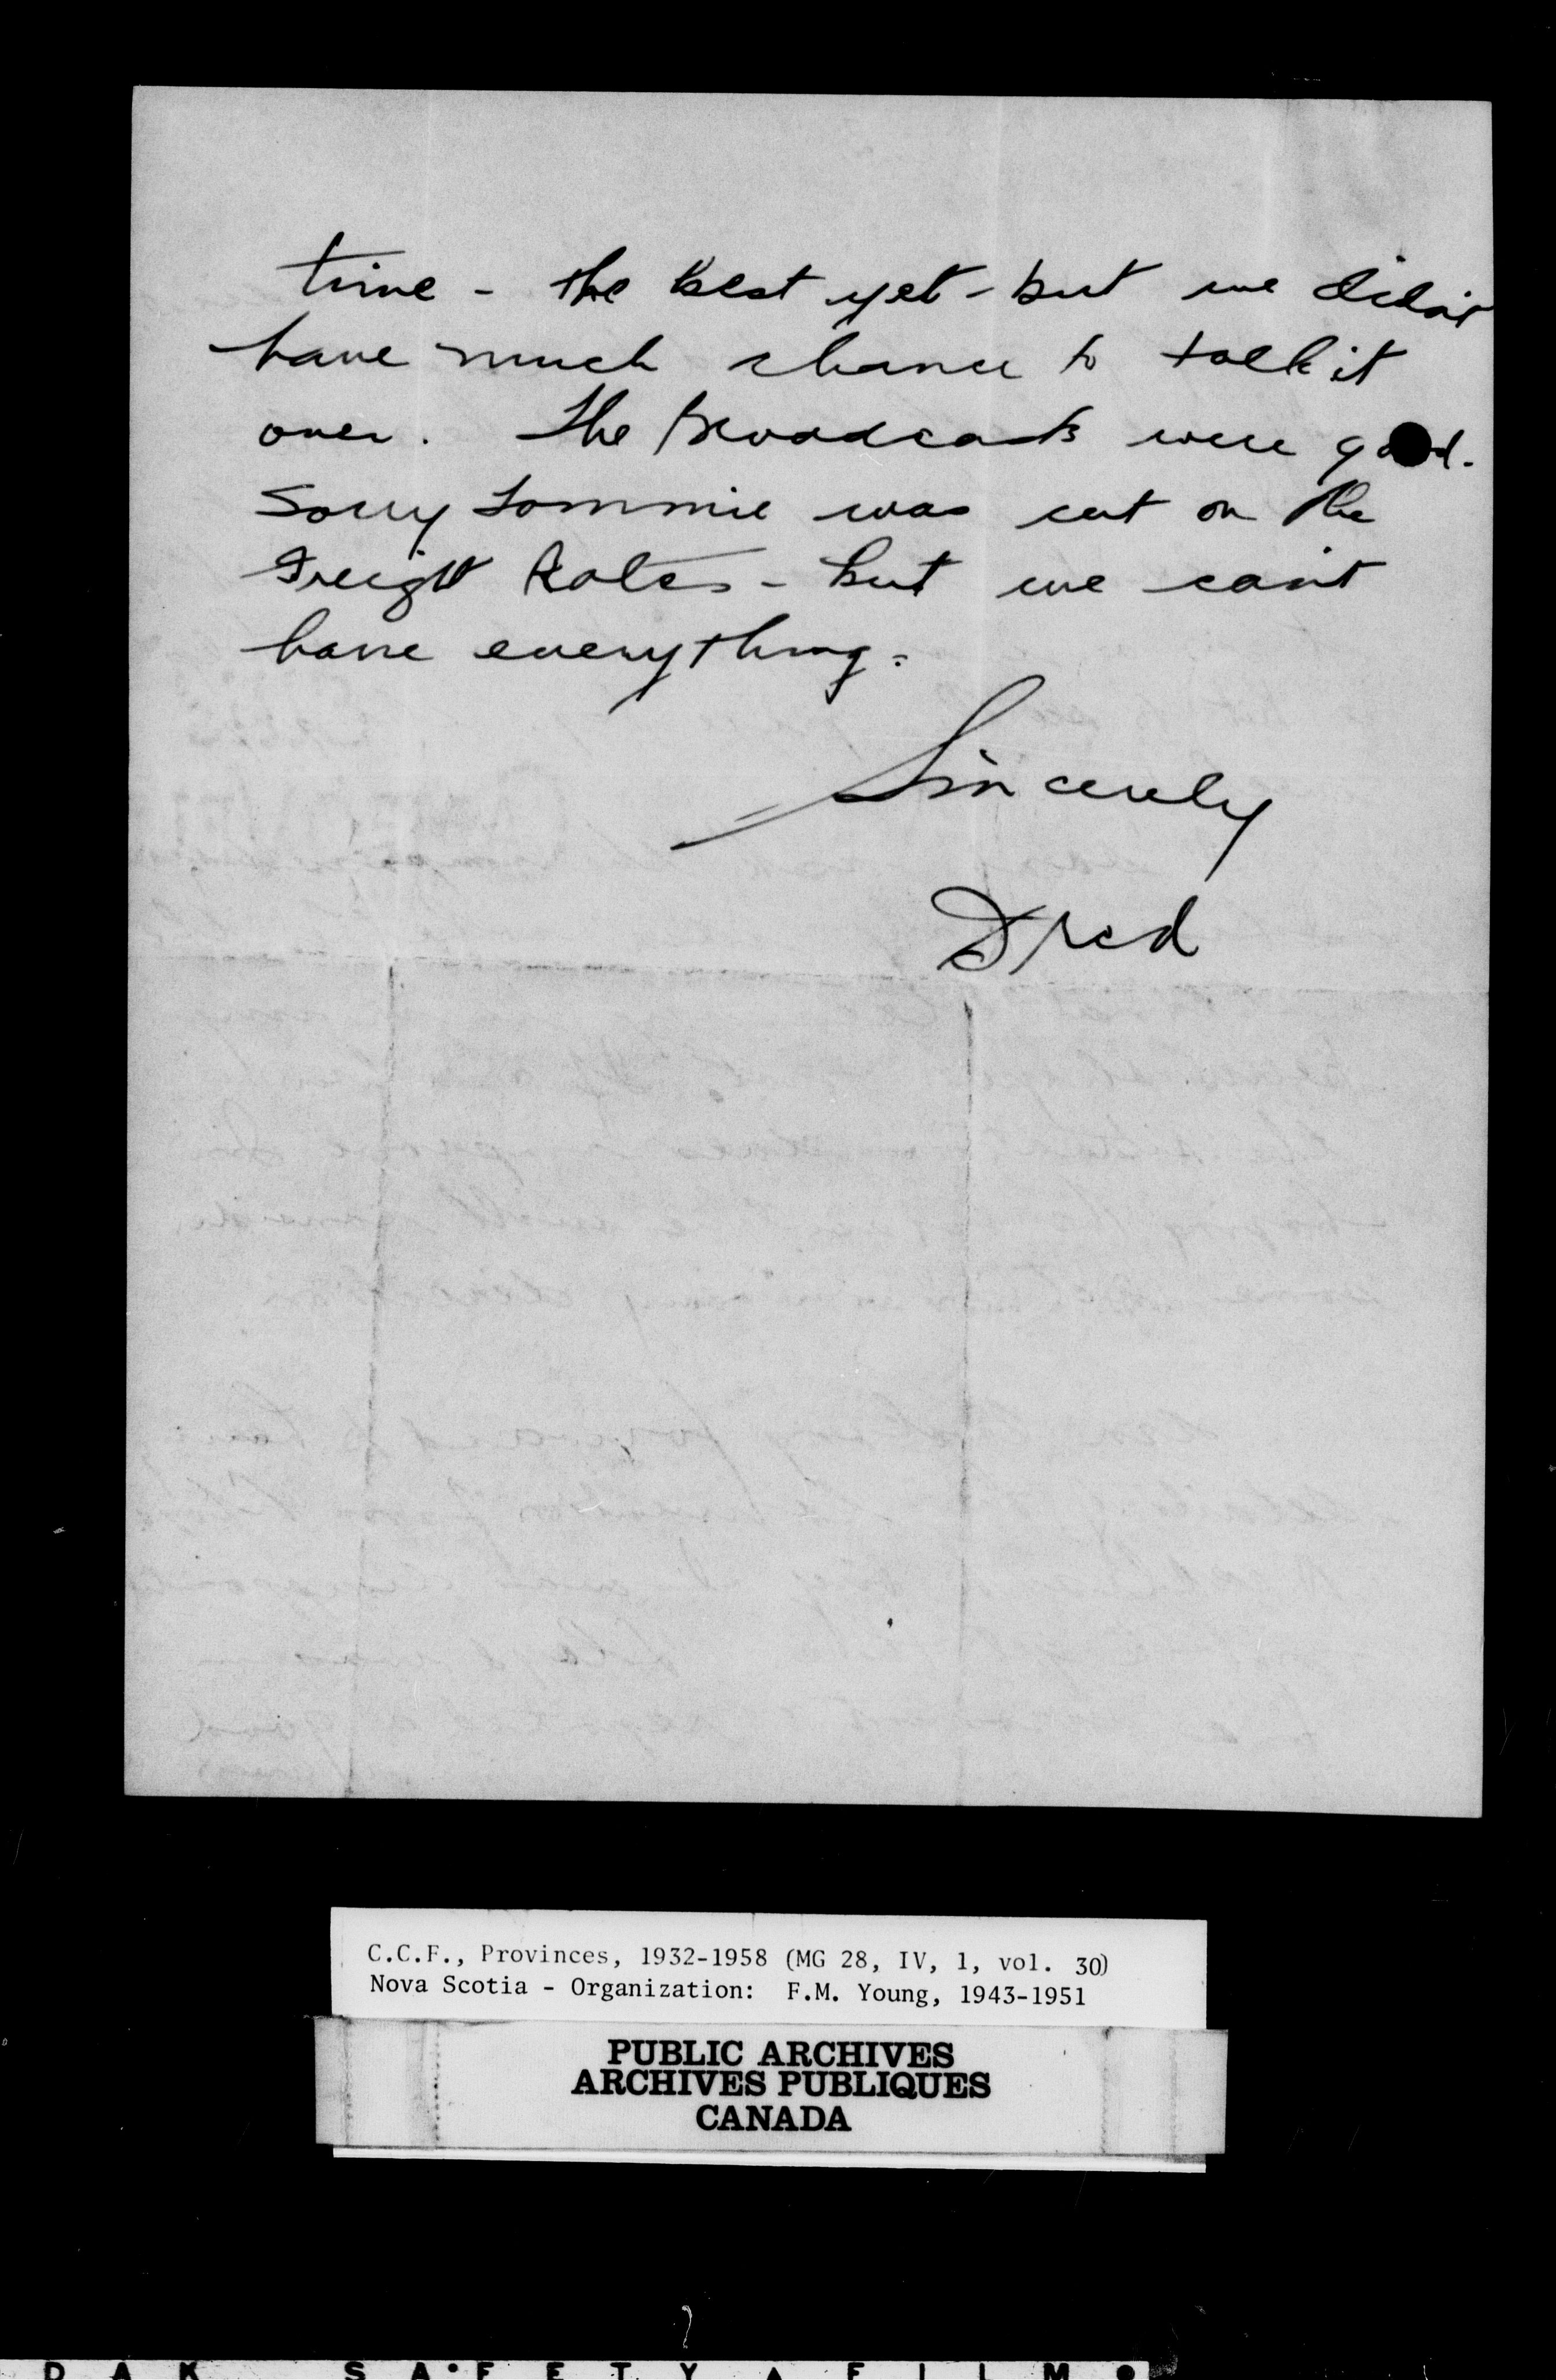 time - the best yet - but we didn't
have much chance to talk it
over. The broadcasts were good.
Sorry Tommie was cut on the
Freight Rates - but we can't
have everything.
Sincerely
Fred
C.C.F., Provinces, 1932-1958 (MG 28, IV, 1, vol. 30)
Nova Scotia - Organization: F.M. Young, 1943-1951
PUBLIC ARCHIVES
ARCHIVES PUBLIQUES
CANADA
DAK SAFETY FILM